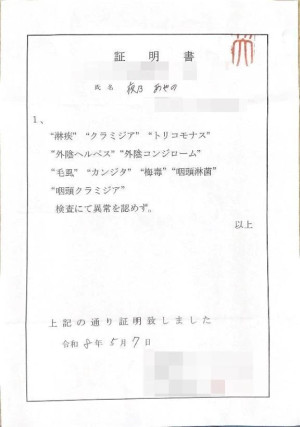 証明書
氏名
1、
"淋疾" "クラミジア" "トリコモナス"
"外陰ヘルペス" "外陰コンジローム"
"毛虱" "カンジタ" "梅毒" "咽頭淋菌"
"咽頭クラミジア"
検査にて異常を認めず。
以上
上記の通り証明致しました
令和 8年 5月 7日